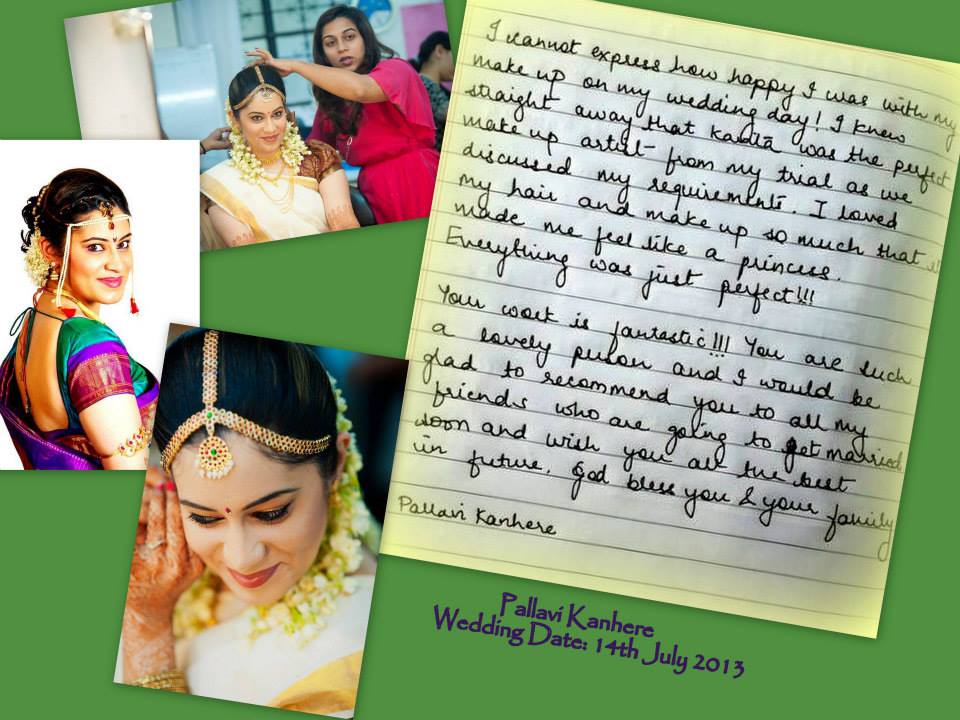 I cannot express how happy I was with my
make up on my wedding day! I knew
straight away that was the perfect
make up artist from my trial as we
discussed my requirements. I loved
my hair and make up so much that it
made me feel like a princess.
Everything was just perfect!!!
Your work is fantastic!!! You are such
a lovely person and I would be
glad to recommend you to all my
friends who are going to get married
soon and wish you all the best
in future. God bless you & your family
Pallavi Kanhere
Pallavi Kanhere
Wedding Date: 14th July 2013